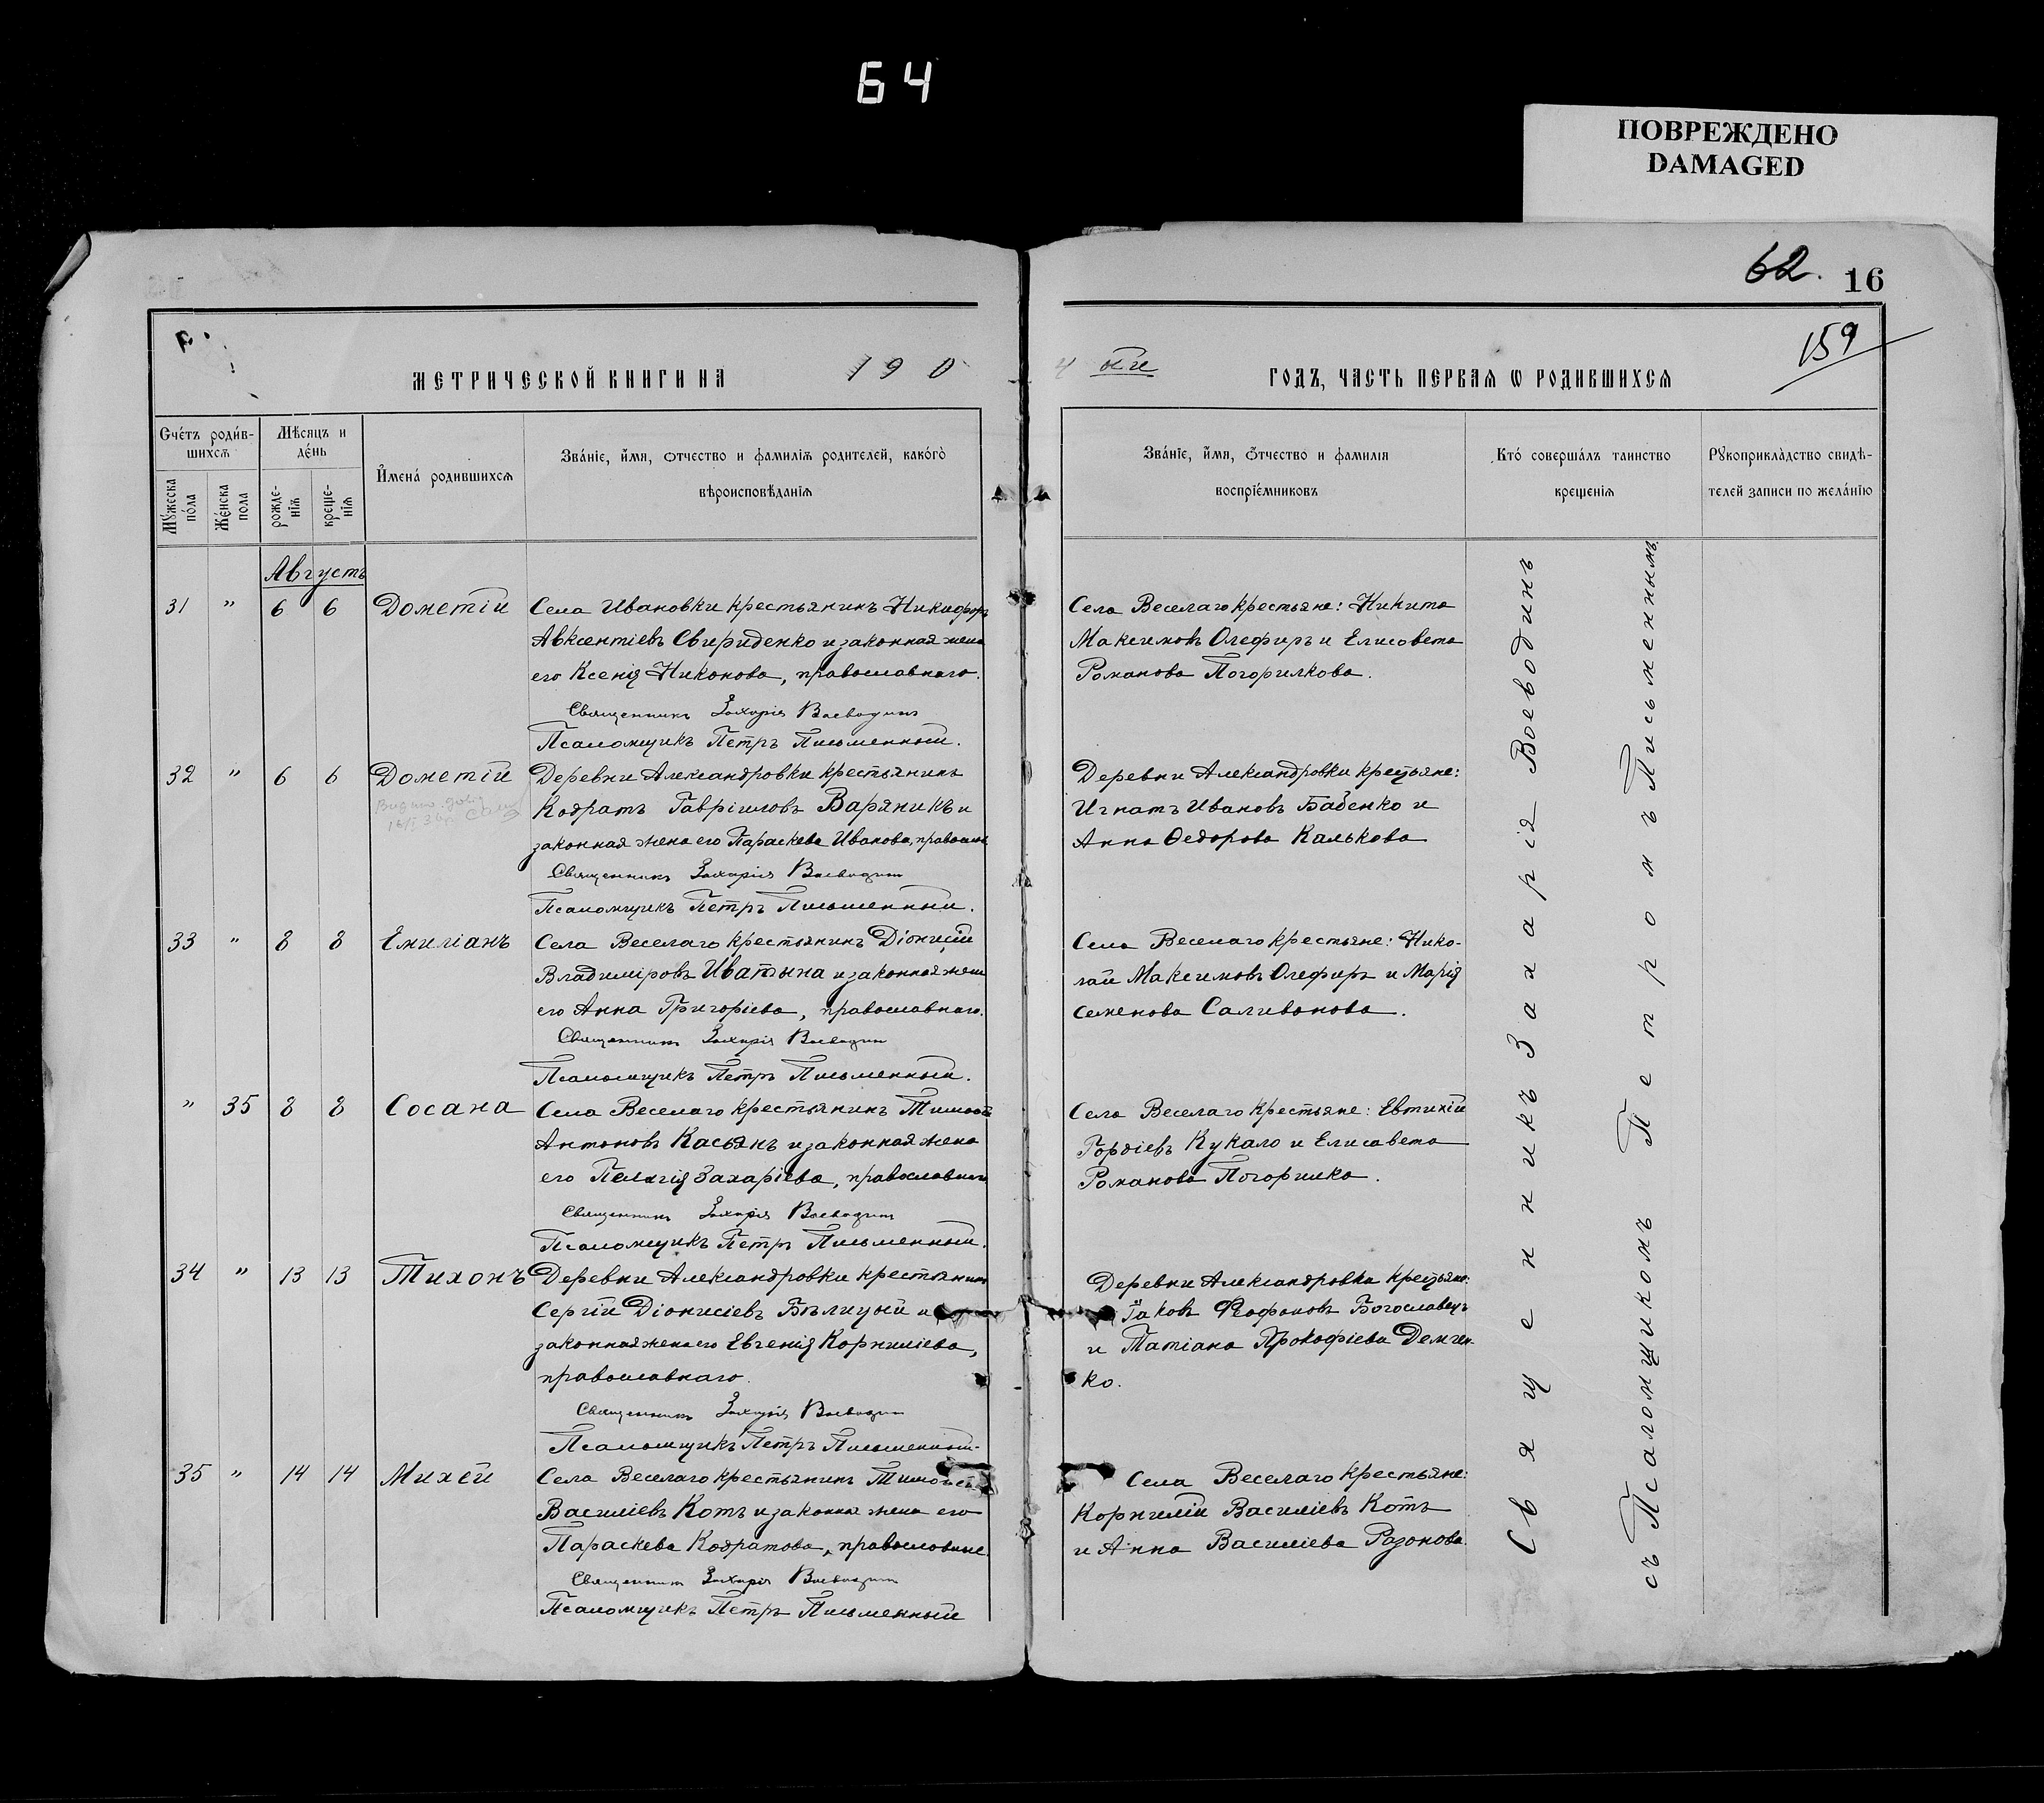 64
ПОВРЕЖДЕНО
DAMAGED
62. 16
159
МЕТРИЧЕСКОЙ КНИГИ НА 190
4 ГОДЪ, ЧАСТЬ ПЕРВАЯ Ѡ РОДИВШИХСЯ
Счетъ родив-
шихся
Мѣсяцъ и
день
Мужеска
пола
Женска
пола
рожде-
нія
креще-
нія
Имена родившихся
Званіе, имя, отчество и фамилія родителей, какого
вѣроисповѣданія
Званіе, имя, отчество и фамилія
воспріемниковъ
Кто совершалъ таинство
крещенія
Рукоприкладство свидѣ-
телей записи по желанію
Августъ
31 " 6 6 Дометій Села Ивановки крестьянинъ Никифоръ
Авксентіевъ Свириденко и законная жена
его Ксенія Никонова, православнаго.
Священникъ Захарія Воеводинъ
Псаломщикъ Петръ Письменный.
Села Веселаго крестьяне: Никита
Максимовъ Олефиръ и Елисавета
Романова Погорилкова.
32 " 6 6 Дометій Деревни Александровки крестьянинъ
Кодратъ Гавріиловъ Варяникъ и
законная жена его Параскева Иванова, православ
Священникъ Захарія Воеводинъ
Псаломщикъ Петръ Письменный.
Деревни Александровки крестьяне:
Игнатъ Ивановъ Бабенко и
Анна Федорова Калькова
33 " 8 8 Емиліанъ Села Веселаго крестьянинъ Діонисій
Владиміровъ Иватына и законная жена
его Анна Григоріева, православнаго.
Священникъ Захарія Воеводинъ
Псаломщикъ Петръ Письменный.
Села Веселаго крестьяне: Нико-
лай Максимовъ Олефиръ и Марія
Семенова Саливонова.
" 35 8 8 Сосана Села Веселаго крестьянинъ Тимофей
Антоновъ Касьянъ и законная жена
его Пелагія Захаріева, православнаго
Священникъ Захарія Воеводинъ
Псаломщикъ Петръ Письменный.
Села Веселаго крестьяне: Евтихій
Гордіевъ Кукало и Елисавета
Романова Погорилко.
34 " 13 13 Тихонъ Деревни Александровки крестьянинъ
Сергій Діонисіевъ Бѣлицый и
законная жена его Евгенія Корниліева,
православнаго.
Священникъ Захарія Воеводинъ
Псаломщикъ Петръ Письменный.
Деревни Александровка крестьяне:
Іаковъ Феофановъ Богославецъ
и Татіана Прокофіева Демчен-
ко.
35 " 14 14 Михей Села Веселаго крестьянинъ Тимофей
Василіевъ Котъ и законная жена его
Параскева Кодратова, православные.
Священникъ Захарія Воеводинъ
Псаломщикъ Петръ Письменный
Села Веселаго крестьяне:
Корнилій Василіевъ Котъ
и Анна Василіева Разонова.
Священникъ Захарія Воеводинъ
съ Псаломщикомъ Петромъ Письменнымъ.